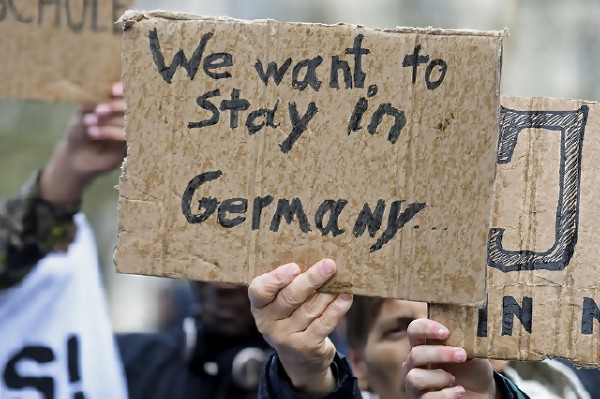 SCHULE
We want to
stay in
Germany...
IN
S!